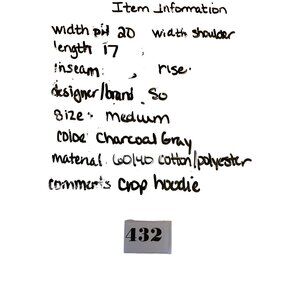 Item Information
width pit 20 width shoulder
length 17
inseam: , rise.
designer/brand. So
size: medium
color Charcoal Gray
material. 60/40 cotton/polyester
comments crop hoodie
432